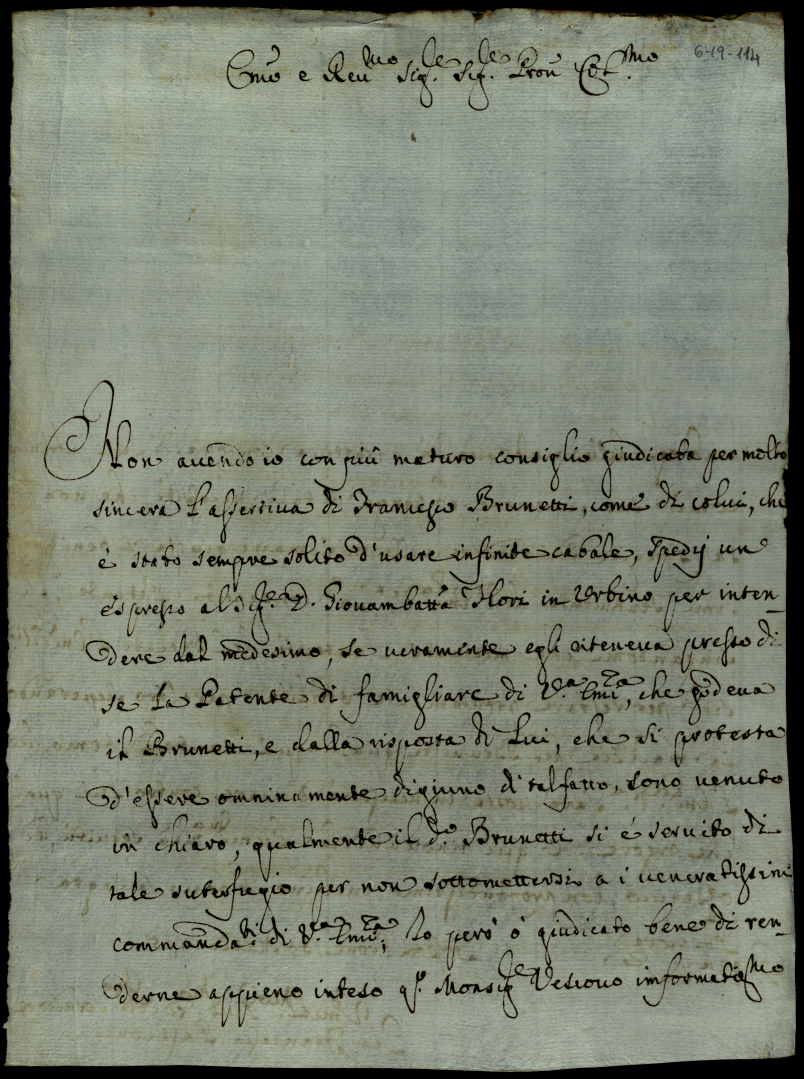 6-19-114
Emo e Reumo Sig.re Sig.re Pron Colmo
Non auendo io con più maturo consiglio giudicata per molto
sincera l'assertiua di Francesco Brunetti, come di colui, che
è stato sempre solito d'usare infinite cabale, spedij un
espresso al Sig.re D. Giouambatta Flori in Urbino per inten-
dere dal medesimo, se ueramente egli riteneua presso di
se la Patente di famigliare di V.a Emza, che godeua
il Brunetti, e dalla risposta di Lui, che si protesta
d'essere omninamente digiuno di tal fatto, sono uenuto
in chiaro, qualmente il d.o Brunetti si è seruito di
tale suterfugio per non sottomettersi a i ueneratissimi
commandati di V.a Emza; Io però ò giudicato bene di ren-
derne appieno inteso q.o Monsig.re Vescouo informatismo